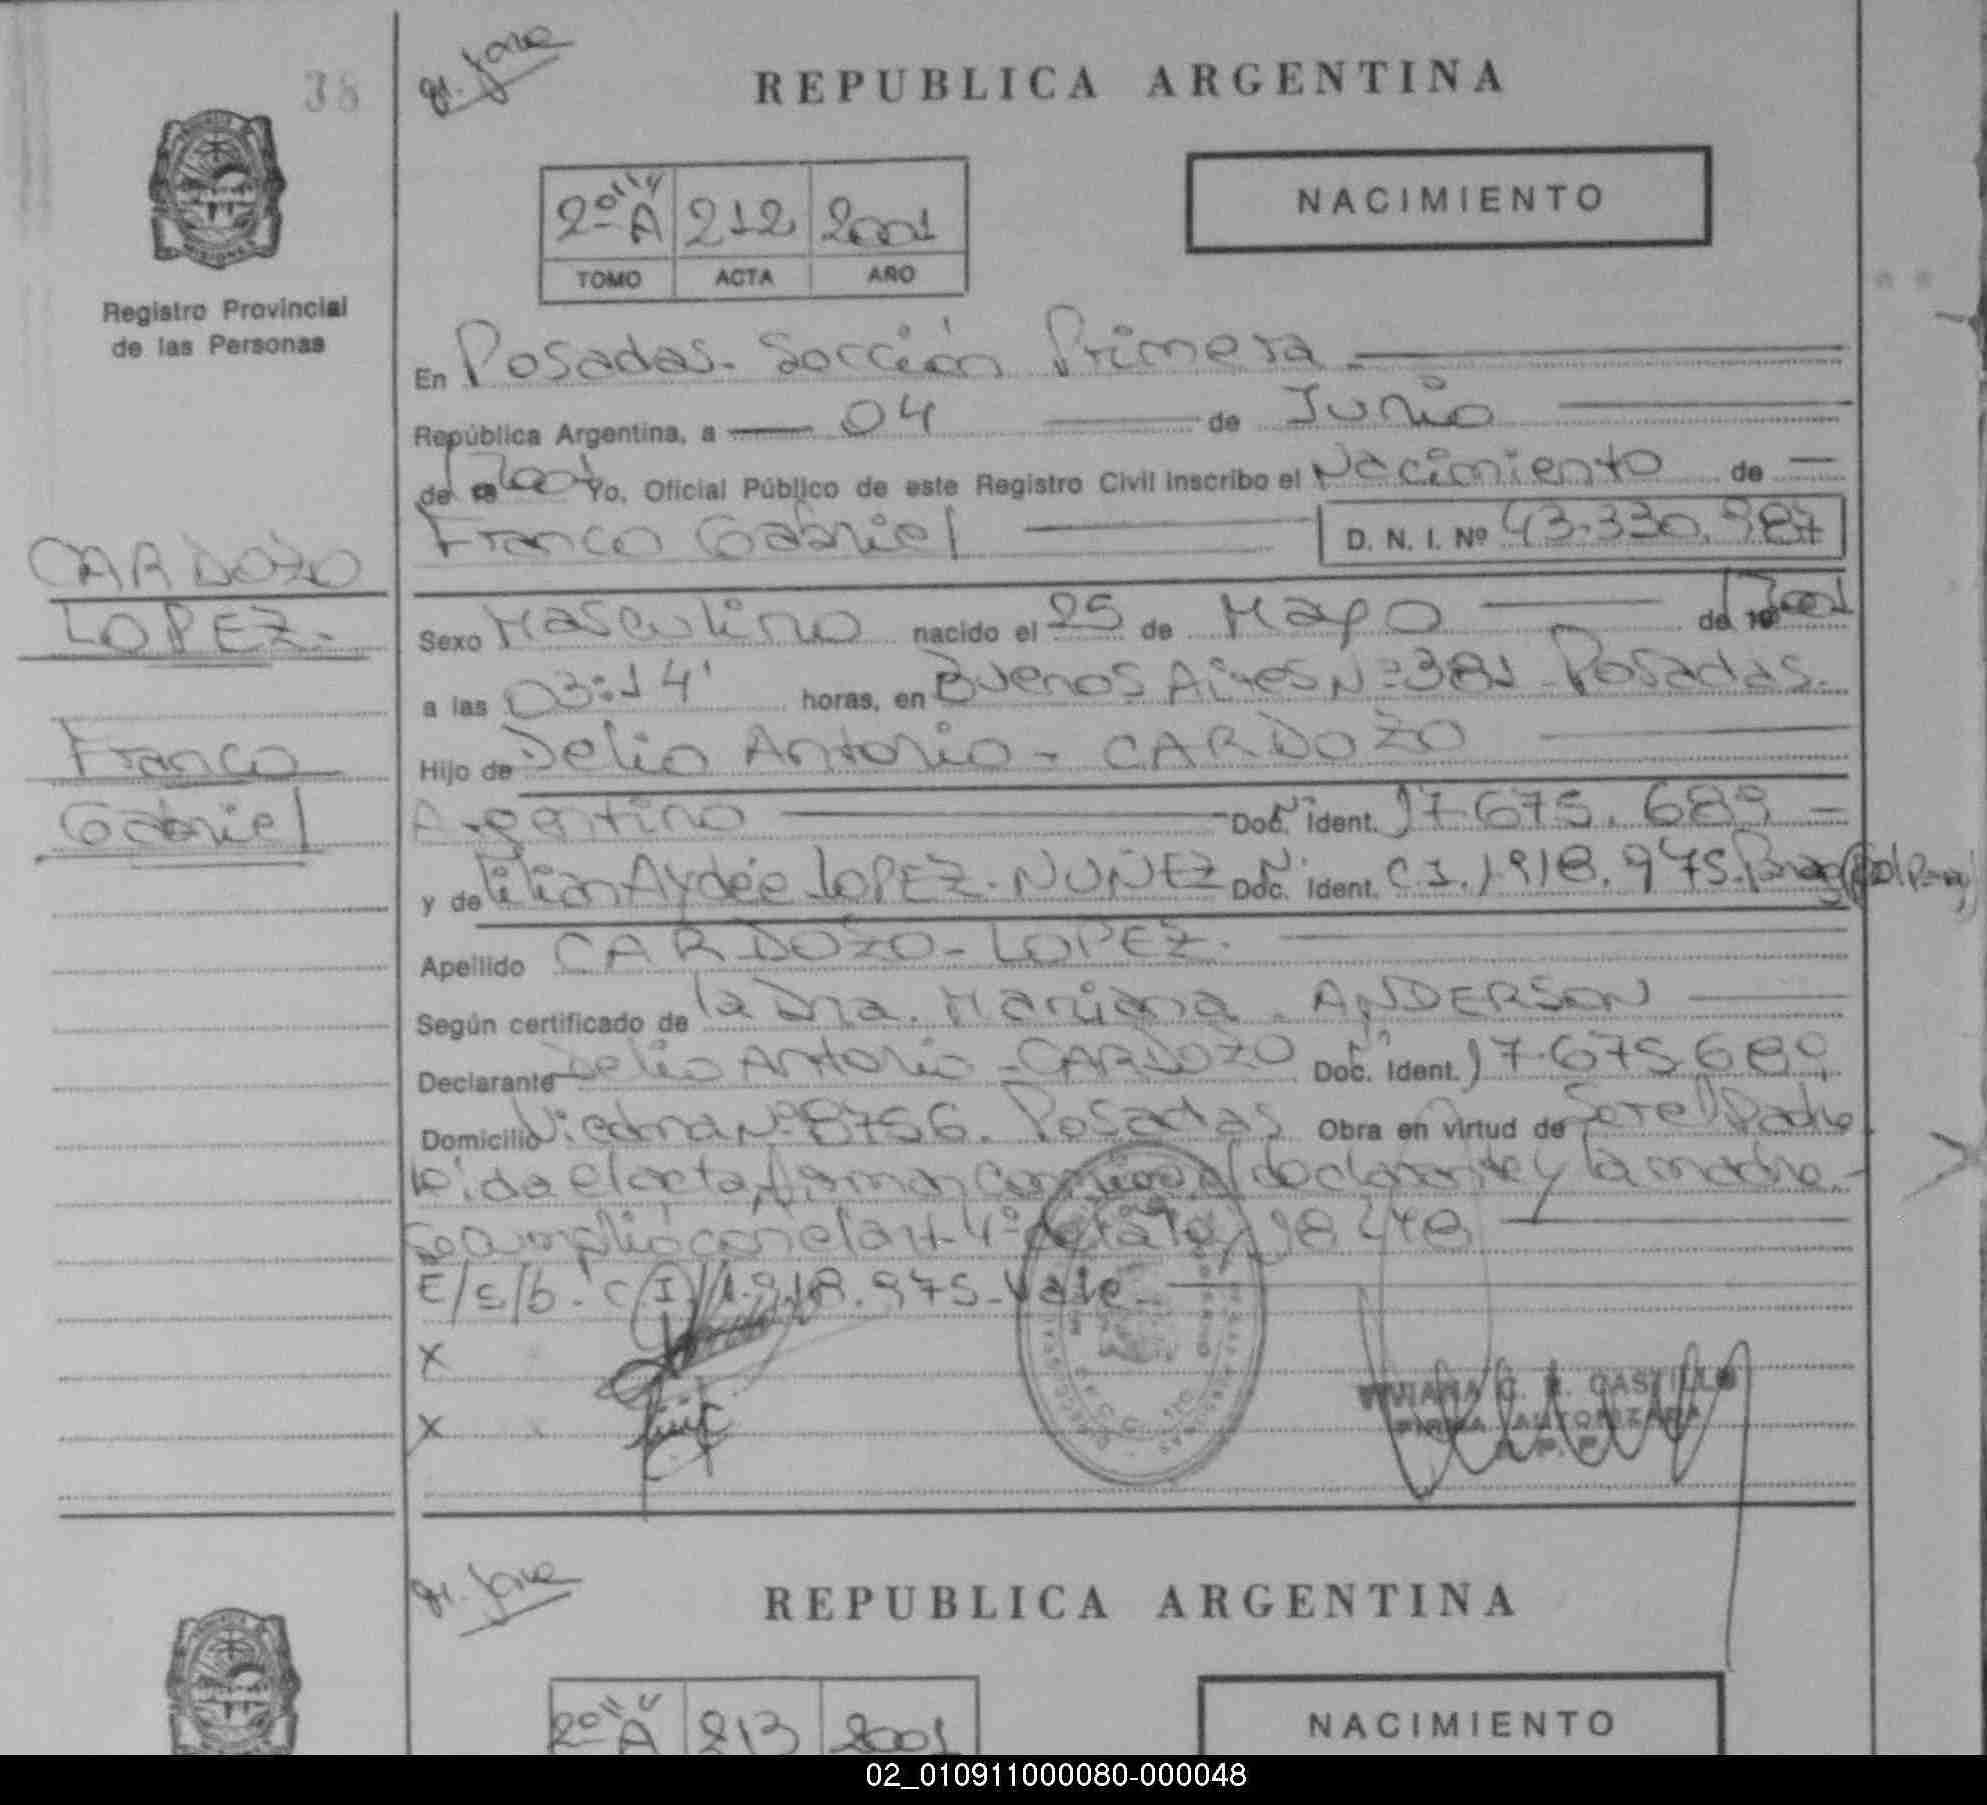 38
REPUBLICA ARGENTINA
2º "A" 212 2001
TOMO ACTA AÑO
NACIMIENTO
Registro Provincial
de las Personas
En Posadas. Sección Primera
República Argentina, a 04 de Junio
de 2001 Yo, Oficial Público de este Registro Civil inscribo el Nacimiento de
Franco Gabriel D. N. I. Nº 43.330.987
CARDOZO
LOPEZ.
Franco
Gabriel
Sexo Masculino nacido el 25 de Mayo de 2001
a las 03:14' horas, en Buenos Aires Nº 381 Posadas.
Hijo de Delio Antonio - CARDOZO
Argentino Doc. Ident. 17.675.689
y de Lilian Aydée LOPEZ. NUÑEZ Doc. Ident. C I. 1.918.975.
Apellido CARDOZO - LOPEZ.
Según certificado de la Dra. Mariana. ANDERSON
Declarante Delio Antonio - CARDOZO Doc. Ident. 17.675.689
Domicilio Viedma Nº 8756. Posadas Obra en virtud de Ser el Padre
leida el acta, firman conmigo el declarante y la madre.
Se amplió con el art. 4º de la ley 18.248
E/s/b. C I 1.918.975. Vale.
X
X
VIVIANA C. R. CASTILLO
FIRMA AUTORIZADA
REPUBLICA ARGENTINA
2º "A" 213 2001
NACIMIENTO
02_010911000080-000048